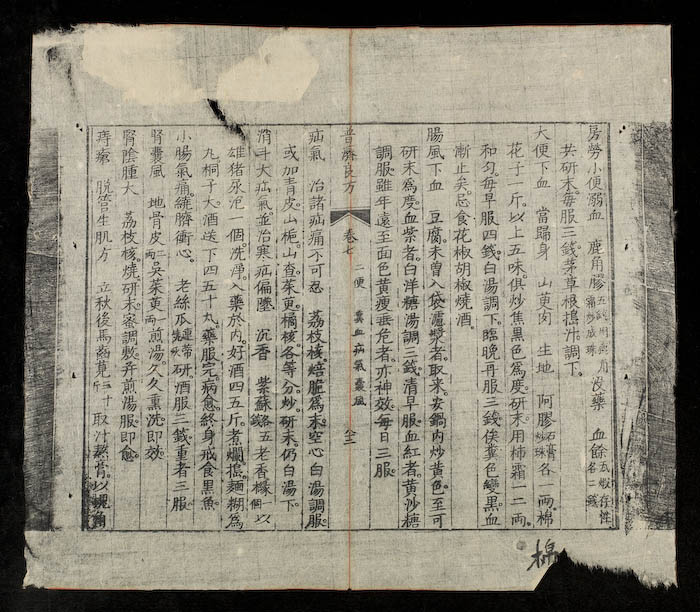 房勞小便溺血　鹿角膠　沒藥　血餘
共研末每服三錢茅草根搗汁調下。
大便下血　當歸身　山萸肉　生地　阿膠　各一兩。棉
花子一斤。以上五味俱炒焦黑色為度。研末用柿霜一二兩。
和勻。每早服四錢。白湯調下。臨晚再服三錢俟糞色變黑血
漸止矣。忌食花椒胡椒燒酒。
腸風下血　豆腐。未曾入袋濾漿者。取來。安鍋內炒黃色。至可
研末為度。血紫者。白洋糖湯調三錢。清早服。血紅者。黃沙糖
調服。雖年遠至面色黃瘦垂危者。亦神效。每日三服
普濟良方　卷七　二便　糞血疝氣囊風
疝氣　治諸疝痛不可忍　荔枝核。焙脆為末。空心白湯調服
或加青皮。山梔。山查。茱萸。橘核。各等分。炒。研末。仍白湯下。
消斗大疝氣並治寒疝偏墜　沉香　紫蘇　各五老香櫞一個以
雄猪尿泡一個。洗淨。入藥於內。好酒四五斤。煮爛搗。麵糊為
丸桐子大酒送下四五十丸。藥服完。病愈。終身戒食黑魚
小腸氣痛繞臍衝心。　老絲瓜連蒂研酒服三錢重者三服
腎囊風　地骨皮二兩吳茱萸一兩煎湯久久熏洗即效
腎陰腫大　荔枝核燒研末蜜調敷并煎湯服即愈
痔瘡　脫管生肌方　立秋後馬齒莧三十斤取汁熬膏。以
棉